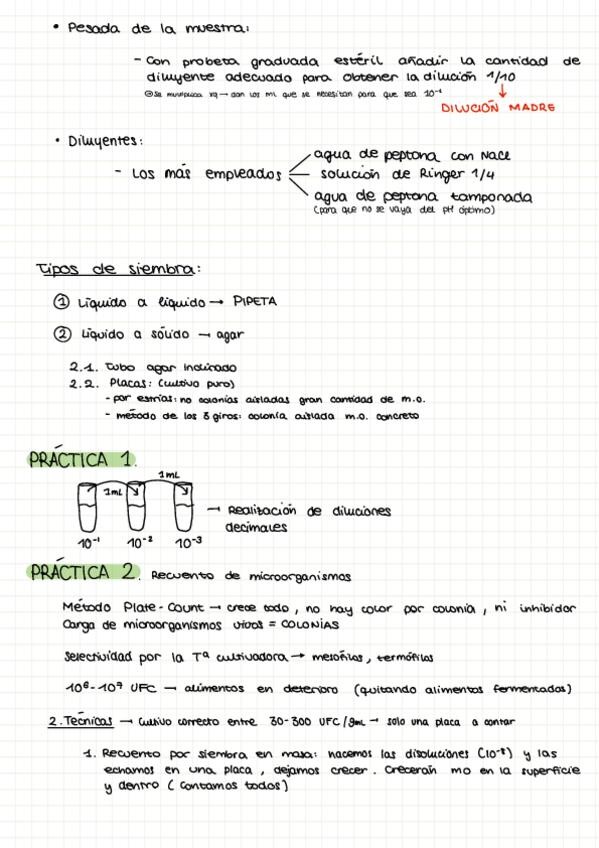 • Pesada de la muestra:
- Con probeta graduada estéril añadir la cantidad de
diluyente adecuado para obtener la dilución 1/10
se multiplica x9 → son los ml que se necesitan para que sea 10⁻¹
DILUCIÓN MADRE
• Diluyentes:
agua de peptona con NaCl
- Los más empleados
solución de Ringer 1/4
agua de peptona tamponada
(para que no se vaya del pH óptimo)
Tipos de siembra:
① Líquido a líquido → PIPETA
② Líquido a sólido → agar
2.1. Tubo agar inclinado
2.2. Placas: (cultivo puro)
- por estrías: no colonias aisladas gran cantidad de m.o.
- método de los 3 giros: colonia aislada m.o. concreto
PRÁCTICA 1.
1mL
1mL
→ Realización de diluciones
decimales
10⁻¹ 10⁻² 10⁻³
PRÁCTICA 2. Recuento de microorganismos
Método Plate-Count → crece todo, no hay color por colonia, ni inhibidor
Carga de microorganismos vivos = COLONIAS
Selectividad por la Tª cultivadora → mesófilas, termófilas
10⁶-10⁷ UFC → alimentos en deterioro (quitando alimentos fermentados)
2. Técnicas → Cultivo correcto entre 30-300 UFC/gmL → solo una placa a contar
1. Recuento por siembra en masa: hacemos las disoluciones (10⁻⁸) y las
echamos en una placa, dejamos crecer. Crecerán mo en la superficie
y dentro (contamos todos)